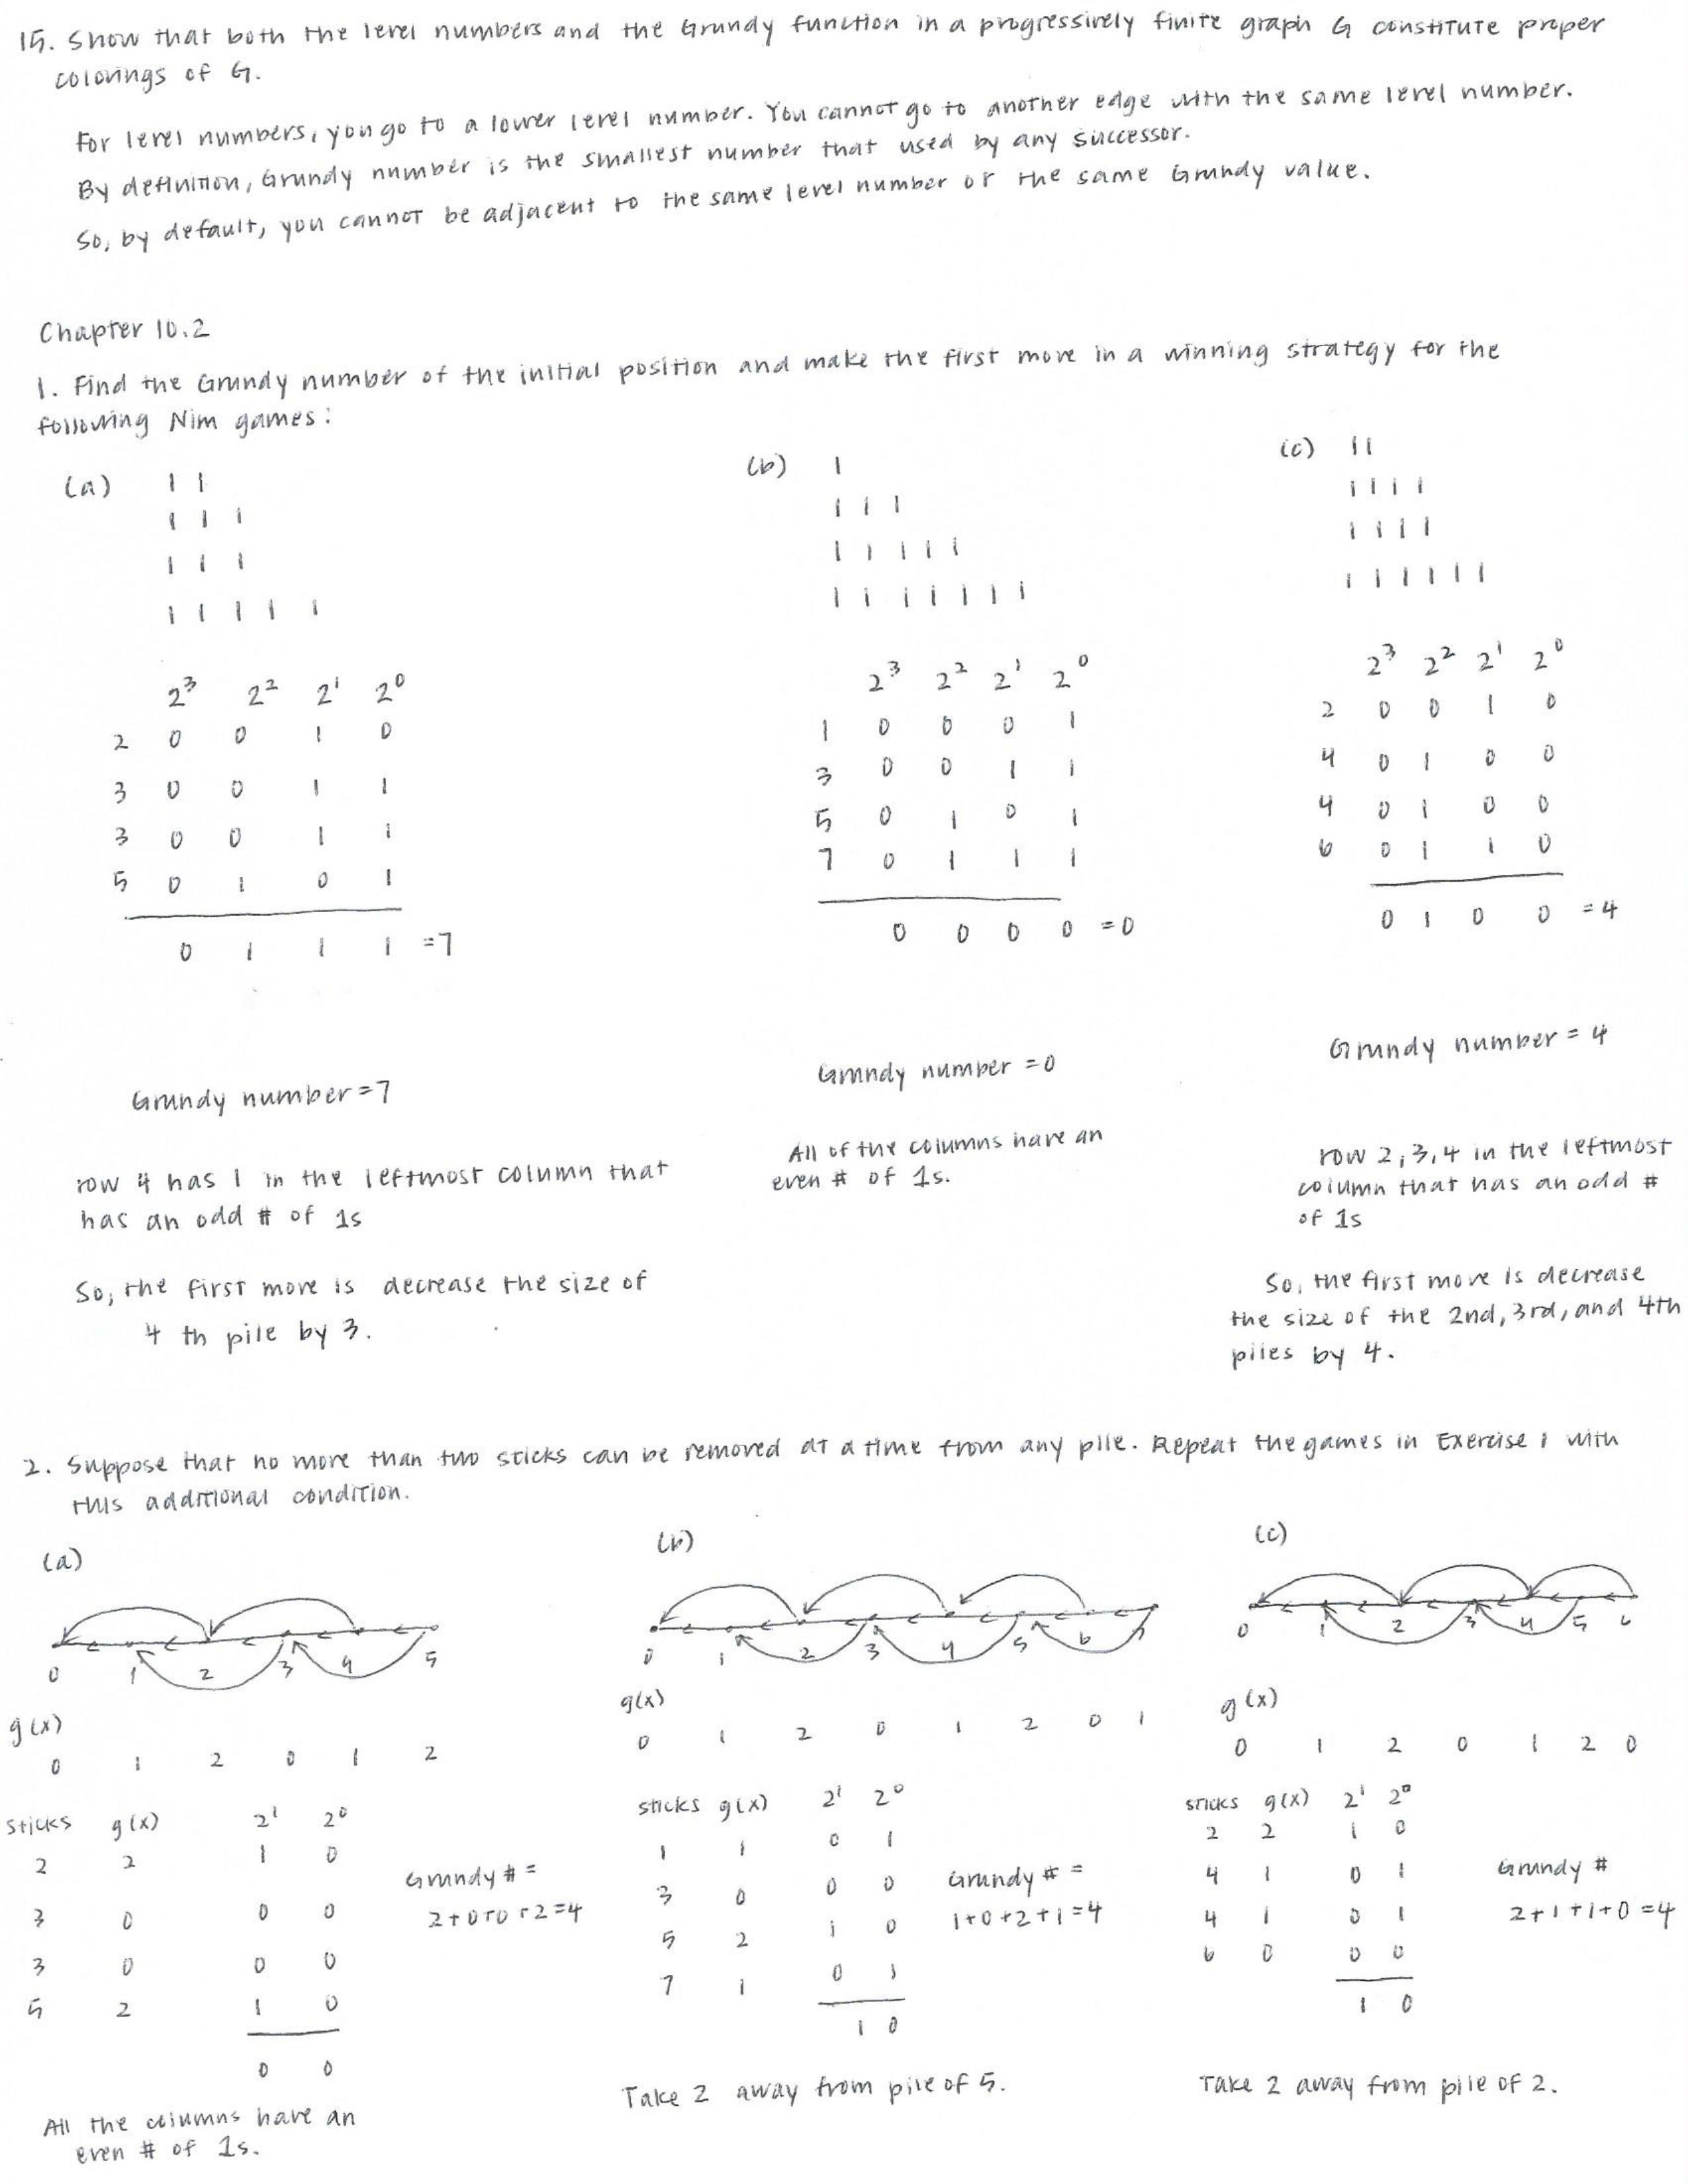 15. Show that both the level numbers and the Grundy function in a progressively finite graph G constitute proper
colorings of G.
For level numbers, you go to a lower level number. You cannot go to another edge with the same level number.
By definition, Grundy number is the smallest number that used by any successor.
So, by default, you cannot be adjacent to the same level number or the same Grundy value.
Chapter 10.2
1. Find the Grundy number of the initial position and make the first move in a winning strategy for the
following Nim games:
(a) 1 1
1 1 1
1 1 1
1 1 1 1 1
2³ 2² 2¹ 2⁰
2 0 0 1 0
3 0 0 1 1
3 0 0 1 1
5 0 1 0 1
0 1 1 1 =7
Grundy number = 7
row 4 has 1 in the leftmost column that
has an odd # of 1s
So, the first move is decrease the size of
4 th pile by 3.
(b) 1
1 1 1
1 1 1 1 1
1 1 1 1 1 1 1
2³ 2² 2¹ 2⁰
1 0 0 0 1
3 0 0 1 1
5 0 1 0 1
7 0 1 1 1
0 0 0 0 =0
Grundy number = 0
All of the columns have an
even # of 1s.
(c) 1 1
1 1 1 1
1 1 1 1
1 1 1 1 1 1
2³ 2² 2¹ 2⁰
2 0 0 1 0
4 0 1 0 0
4 0 1 0 0
6 0 1 1 0
0 1 0 0 =4
Grundy number = 4
row 2,3,4 in the leftmost
column that has an odd #
of 1s
So, the first move is decrease
the size of the 2nd, 3rd, and 4th
piles by 4.
2. Suppose that no more than two sticks can be removed at a time from any pile. Repeat the games in Exercise 1 with
this additional condition.
(a)
0 1 2 3 4 5
g(x)
0 1 2 0 1 2
sticks g(x) 2¹ 2⁰
2 2 1 0
3 0 0 0
3 0 0 0
5 2 1 0
0 0
Grundy # =
2+0+0+2=4
All the columns have an
even # of 1s.
(b)
0 1 2 3 4 5 6 7
g(x)
0 1 2 0 1 2 0 1
sticks g(x) 2¹ 2⁰
1 1 0 1
3 0 0 0
5 2 1 0
7 1 0 1
1 0
Grundy # =
1+0+2+1=4
Take 2 away from pile of 5.
(c)
0 1 2 3 4 5 6
g(x)
0 1 2 0 1 2 0
sticks g(x) 2¹ 2⁰
2 2 1 0
4 1 0 1
4 1 0 1
6 0 0 0
1 0
Grundy #
2+1+1+0=4
Take 2 away from pile of 2.